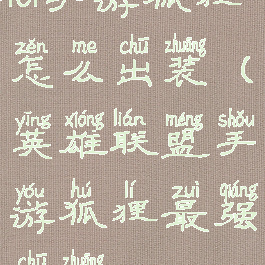 游狐狸
zěn me chū zhuāng
怎么出装（
yīng xióng lián méng shǒu
英雄联盟手
yóu hú lí zuì qiáng
游狐狸最强
chū zhuāng